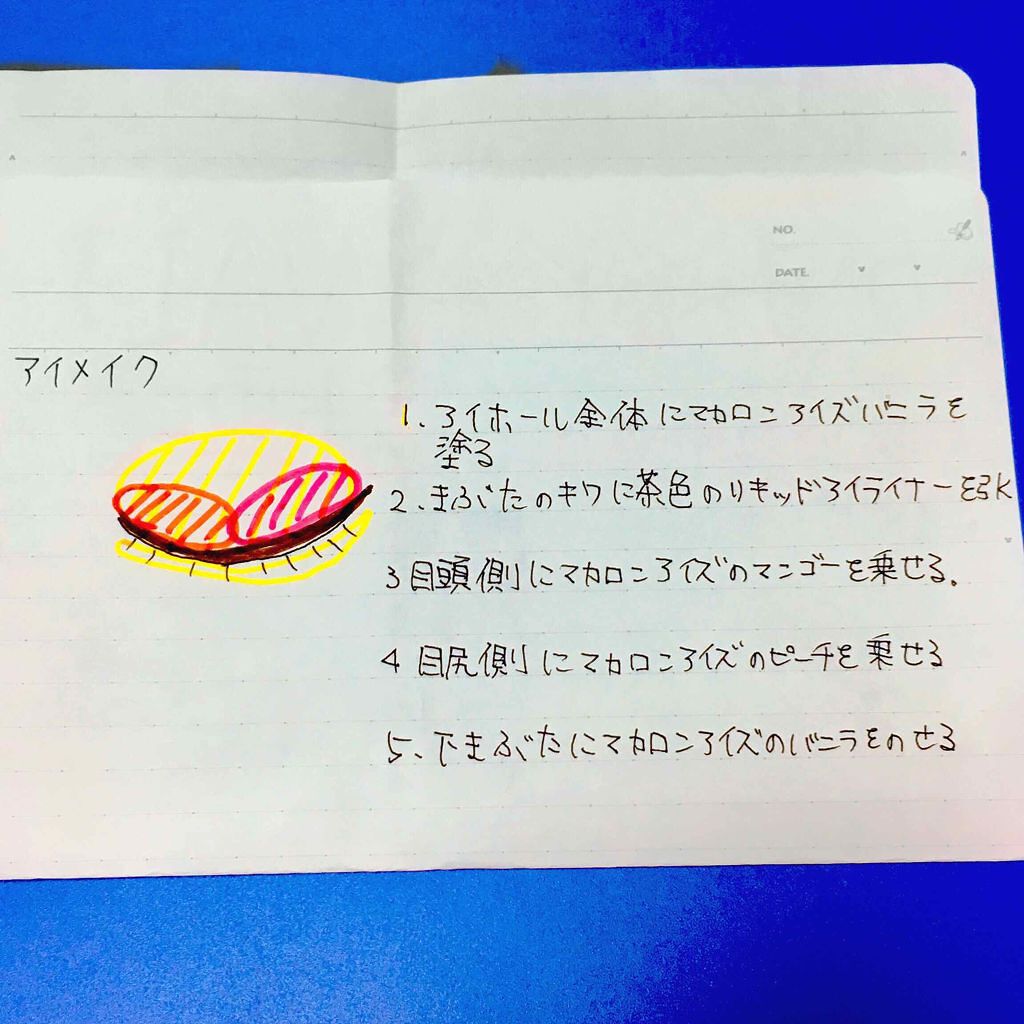 NO.
DATE.
アイメイク
1. アイホール全体にマカロンアイズバニラを
塗る
2、まぶたのキワに茶色のリキッドアイライナーを引く
3 目頭側にマカロンアイズのマンゴーを乗せる。
4 目尻側にマカロンアイズのピーチを乗せる
5、下まぶたにマカロンアイズのバニラをのせる